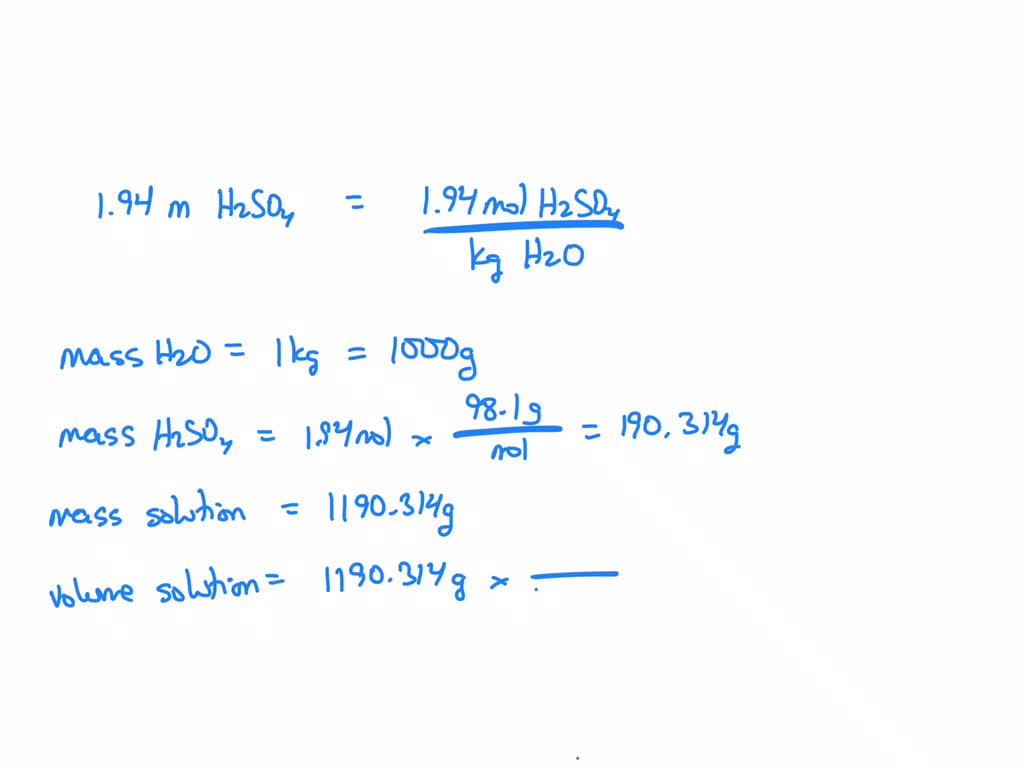 1.94 m H2SO4 = 1.94 mol H2SO4
kg H2O
mass H2O = 1kg = 1000g
mass H2SO4 = 1.94 mol × 98.1g / mol = 190.314g
mass solution = 1190.314g
volume solution = 1190.314g ×